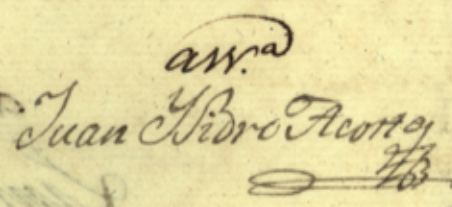 Juan Ysidro Acosta